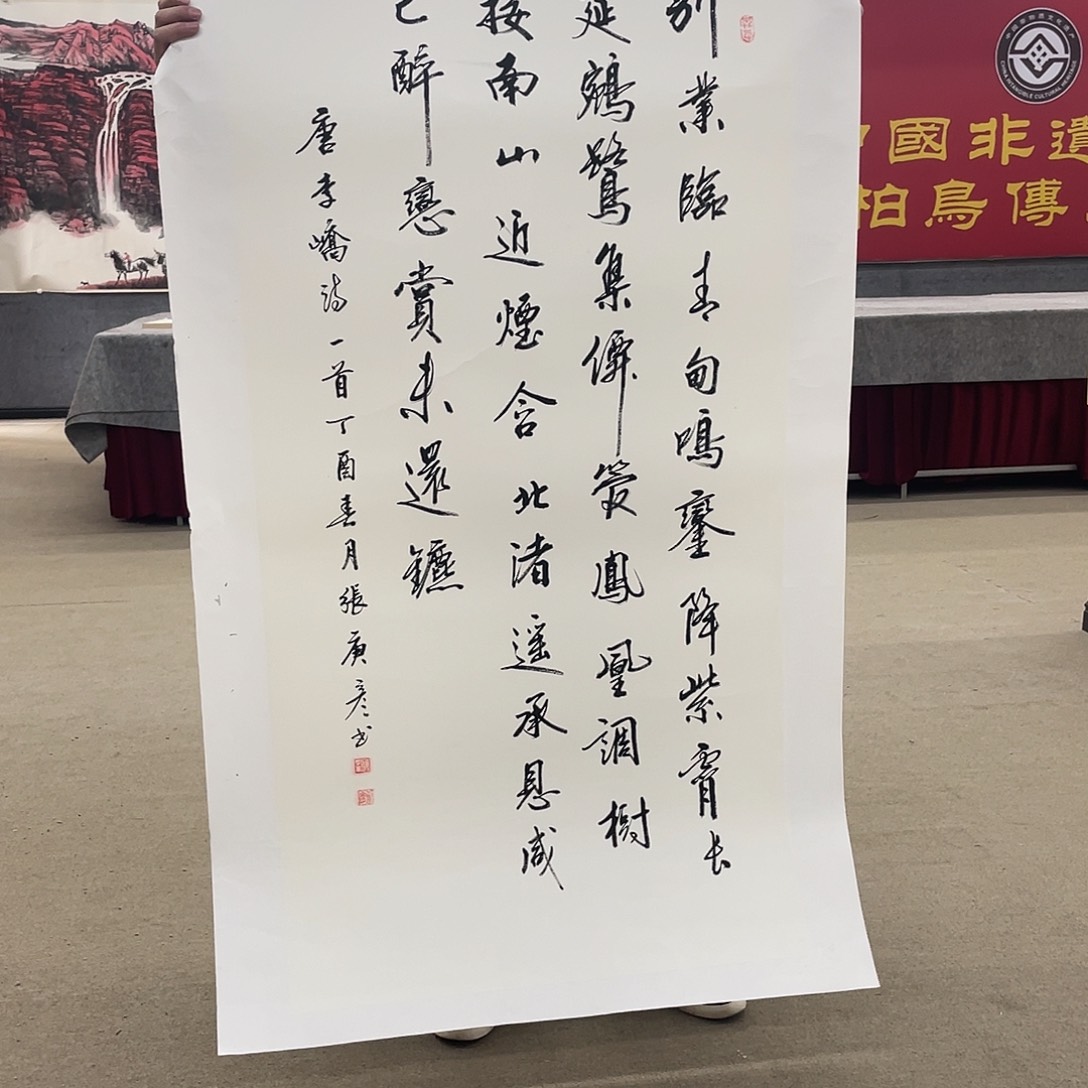 別業臨青甸鳴鑾降紫霄長
筵鵷鷺集僊管鳳凰調樹
接南山近煙含北渚遥承恩咸
已醉戀賞未還鑣
唐李嶠詩一首丁酉春月張庚彦书
中國非遺
柏鳥傳
CHINA INTANGIBLE CULTURAL HERITAGE